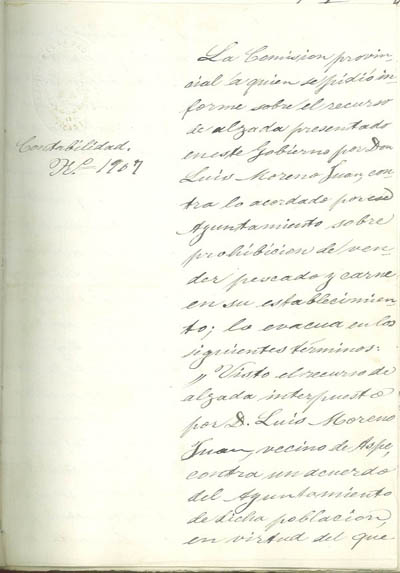 Contabilidad.
Nº 1907
La Comision provin-
cial la quien se pidió in-
forme sobre el recurso
de alzada presentado
en este Gobierno por Don
Luis Moreno Juan, con-
tra lo acordado por ese
Ayuntamiento sobre
prohibicion de ven-
der pescado y carne
en su establecimien-
to; lo evacua en los
siguientes términos:
"Visto el recurso de
alzada interpuesto
por D. Luis Moreno
Juan, vecino de Aspe,
contra un acuerdo
del Ayuntamiento
de dicha poblacion,
en virtud del que